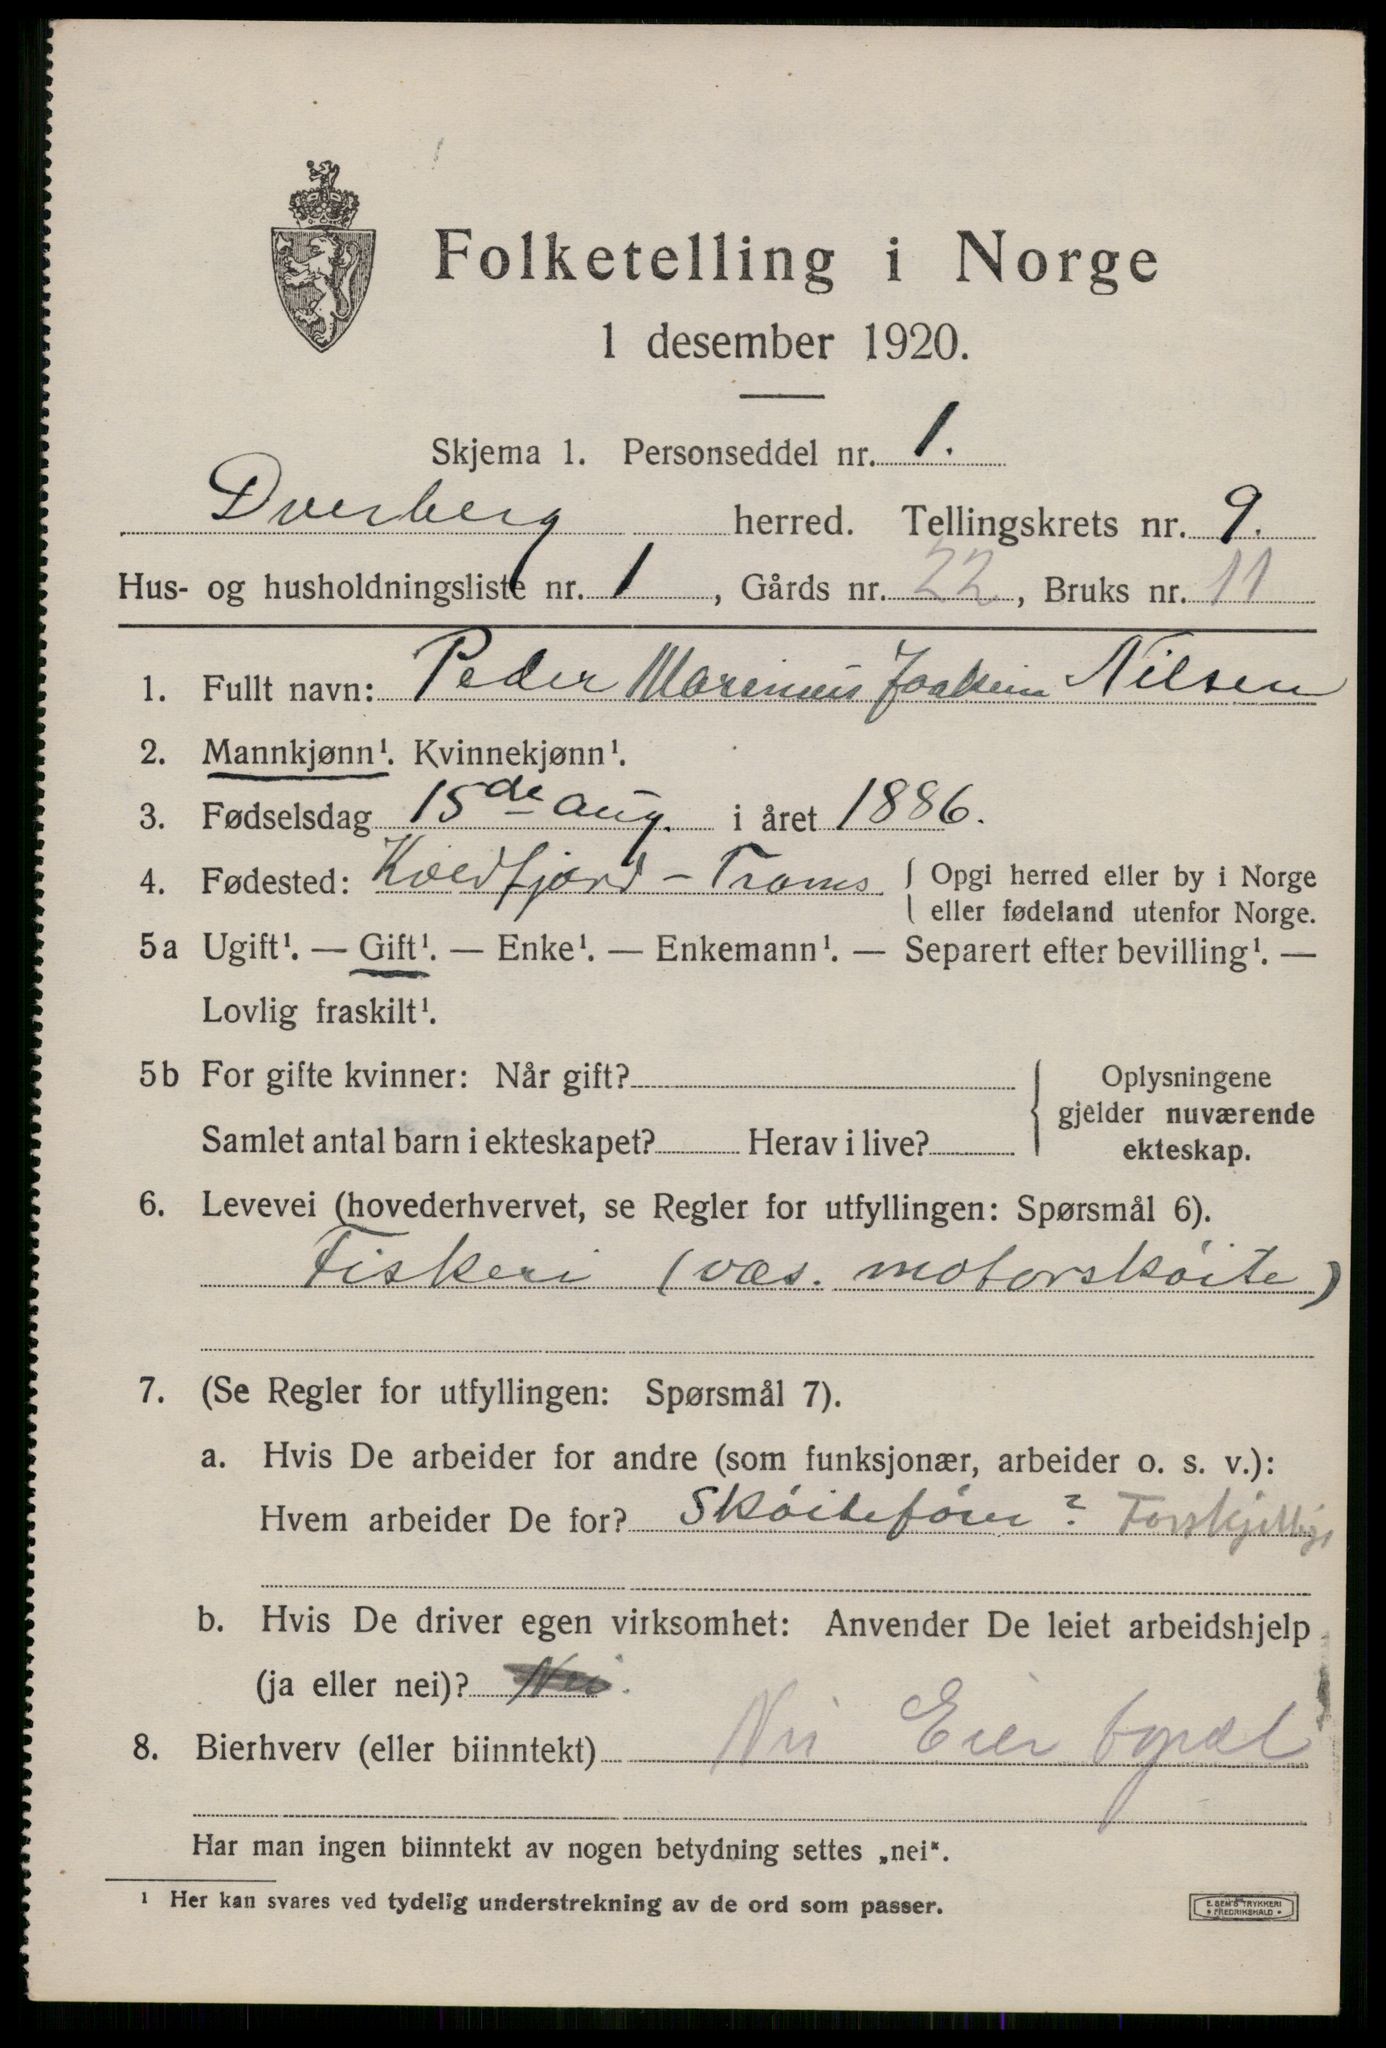 Folketelling i Norge
1 desember 1920.
Skjema 1. Personseddel nr. 1.
Dverberg herred. Tellingskrets nr. 9.
Hus- og husholdningsliste nr. 1, Gårds nr. 22, Bruks nr. 11
1. Fullt navn: Peder Marinius Joakim Nilsen
2. Mannkjønn¹. Kvinnekjønn¹.
3. Fødselsdag 15de aug. i året 1886.
4. Fødested: Kvedfjord - Troms { Opgi herred eller by i Norge
eller fødeland utenfor Norge.
5a Ugift¹. — Gift¹. — Enke¹. — Enkemann¹. — Separert efter bevilling¹. —
Lovlig fraskilt¹.
5b For gifte kvinner: Når gift?
Samlet antal barn i ekteskapet? Herav i live?
Oplysningene
gjelder nuværende
ekteskap.
6. Levevei (hovederhvervet, se Regler for utfyllingen: Spørsmål 6).
Fiskeri (væs. motorskøite)
7. (Se Regler for utfyllingen: Spørsmål 7).
a. Hvis De arbeider for andre (som funksjonær, arbeider o. s. v.):
Hvem arbeider De for? Skøitefører? Forskjellige
b. Hvis De driver egen virksomhet: Anvender De leiet arbeidshjelp
(ja eller nei)? Nei.
8. Bierhverv (eller biinntekt) Nei Eier
Har man ingen biinntekt av nogen betydning settes „nei“.
¹ Her kan svares ved tydelig understrekning av de ord som passer.
E. SEM'S TRYKKERI
• FREDRIKSHALD •